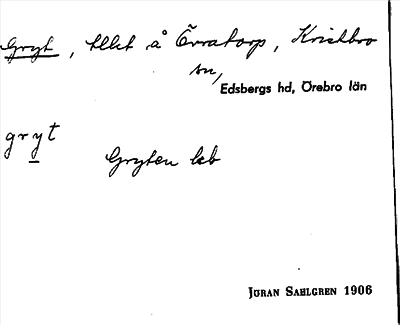 Gryt, tllet å Övratorp, Knistbro
sn,
Edsbergs hd, Örebro län
gryt
Gryten lsb
JÖRAN SAHLGREN 1906